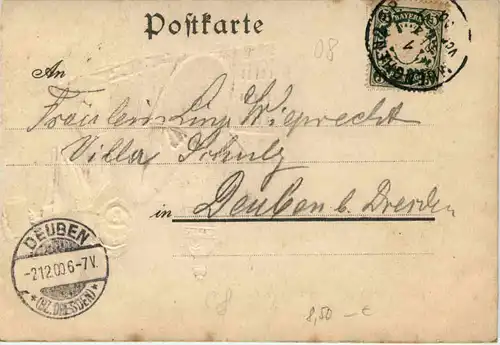 Postkarte
08
BAYERN
An
Fräulein Wieprecht
Villa Schulz
in Deuben b. Dresden
DEUBEN
-2.12.00 6-7 V.
*(BZ. DRESDEN)*
8,50 - €